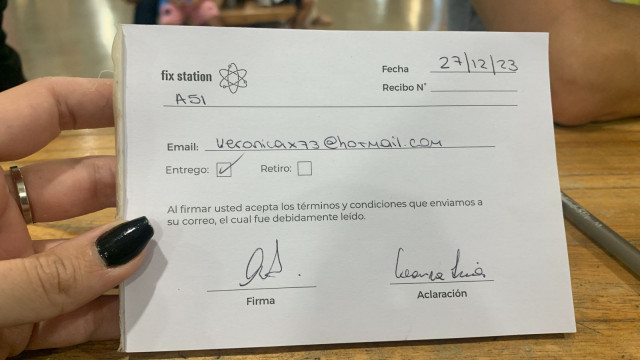 fix station
Fecha 27/12/23
Recibo N°
A51
Email: veronicax73@hotmail.com
Entrego: Retiro:
Al firmar usted acepta los términos y condiciones que enviamos a
su correo, el cual fue debidamente leído.
Firma
Aclaración